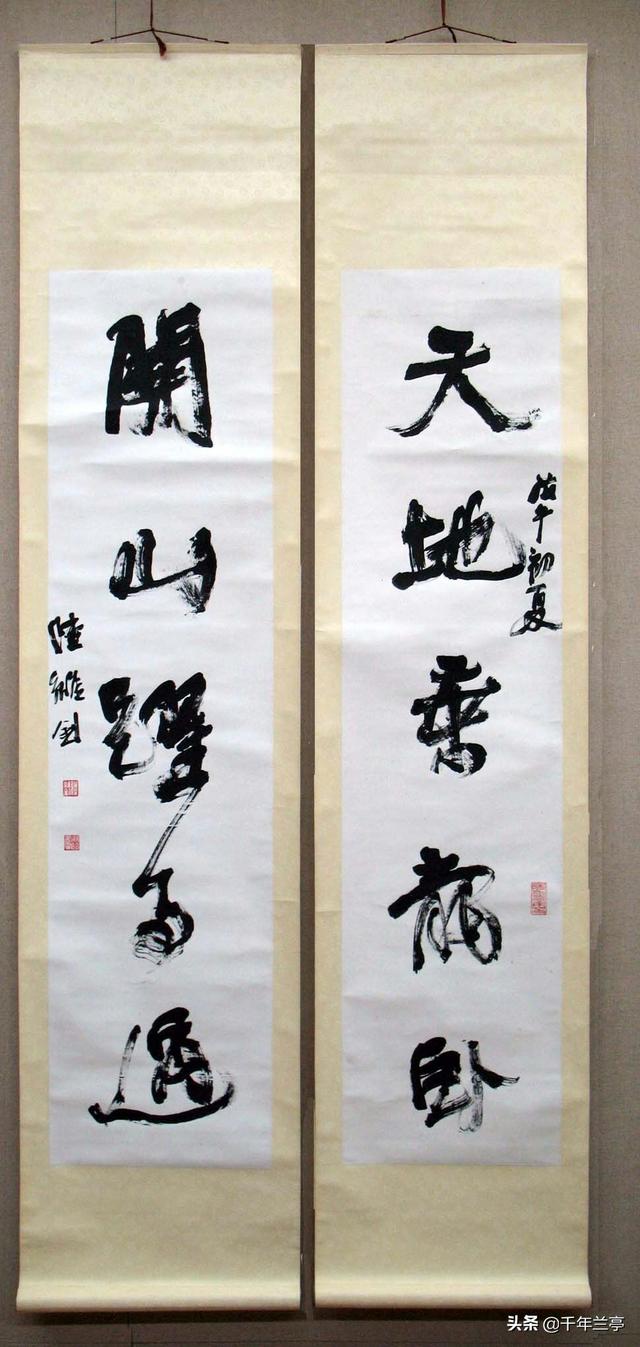 天地乘龍臥
戊午初夏
關山躍馬過
陸維釗
头条 @千年兰亭